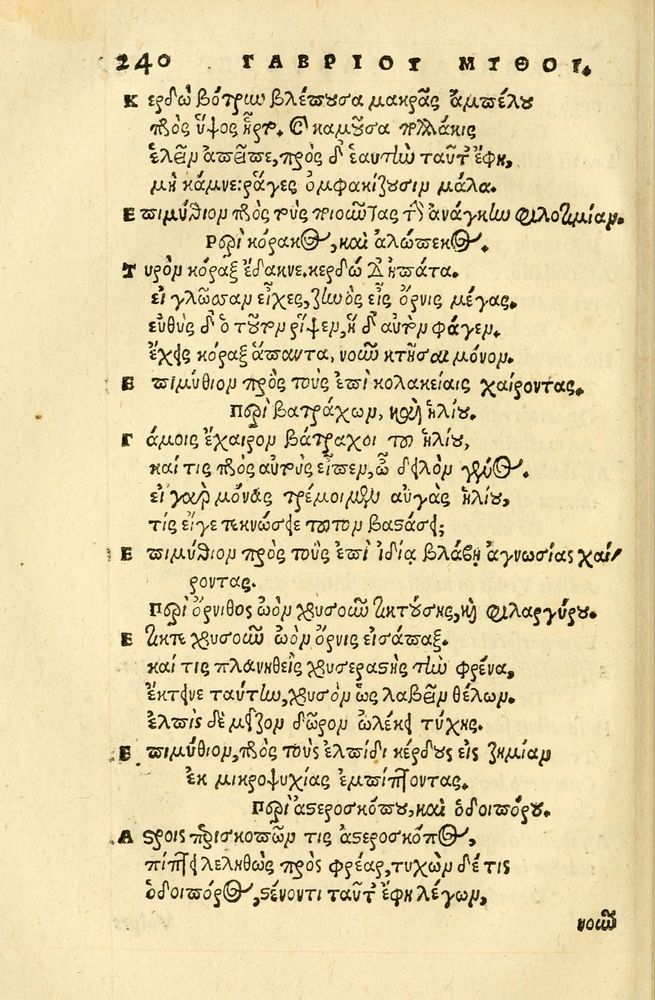 240 ΓΑΒΡΙΟΥ ΜΥΘΟΙ.
Κερδὼ βότρυν βλέπουσα μακρᾶς ἀμπέλου
πρὸς ὕψος ἤρτο. καὶ καμοῦσα πολλάκις
ἑλεῖν ἀπεῖπε, πρὸς δ' ἑαυτὴν ταῦτ' ἔφη,
μὴ κάμνε: ῥάγες ὀμφακίζουσιν μάλα.
Ἐπιμύθιον πρὸς τοὺς ποιοῦντας τὴν ἀνάγκην φιλοτιμίαν.
Περὶ κόρακος, καὶ ἀλώπεκος.
Τυρὸν κόραξ ἔδακνε. κερδὼ δ' ἠπάτα.
εἰ γλῶσσαν εἶχες, ζηνὸς εἶς ὄρνις μέγας.
εὐθὺς δ' ὁ τοῦτον ῥίψεν, ἡ δ' αὐτὸν φάγεν.
ἔχεις κόραξ ἅπαντα, νοῦν κτῆσαι μόνον.
Ἐπιμύθιον πρὸς τοὺς ἐπὶ κολακείαις χαίροντας.
Περὶ βατράχων, καὶ ἡλίου.
Γάμοις ἔχαιρον βάτραχοι τοῦ ἡλίου,
καί τις πρὸς αὐτοὺς εἶπεν, ὦ δειλὸν γένος.
εἰ γὰρ μόνας τρέμοιμεν αὐγὰς ἡλίου,
τίς εἴγε τεκνώσειε τοῦτον βαστάσει;
Ἐπιμύθιον πρὸς τοὺς ἐπὶ ἰδίᾳ βλάβῃ ἀγνωσίας χαί-
ροντας.
Περὶ ὄρνιθος ὠὸν χρυσοῦν τικτούσης, καὶ φιλαργύρου.
Ἔτικτε χρυσοῦν ὠὸν ὄρνις εἰσάπαξ.
καί τις πλανηθεὶς χρυσεραστὴς τὴν φρένα,
ἔκτεινε ταύτην, χρυσὸν ὡς λαβεῖν θέλων.
ἐλπὶς δὲ μεῖζον δῶρον ὠλέκει τύχης.
Ἐπιμύθιον, πρὸς τοὺς ἐλπίδι κέρδους εἰς ζημίαν
ἐκ μικροψυχίας ἐμπίπτοντας.
Περὶ ἀστεροσκόπου, καὶ ὁδοιπόρου.
Ἄστροις προσκοπῶν τις ἀστεροσκόπος,
πίπτει λεληθὼς πρὸς φρέαρ, τυχὼν δέ τις
ὁδοιπόρος, στένοντι ταῦτ' ἔφη λέγων,
νοῦν